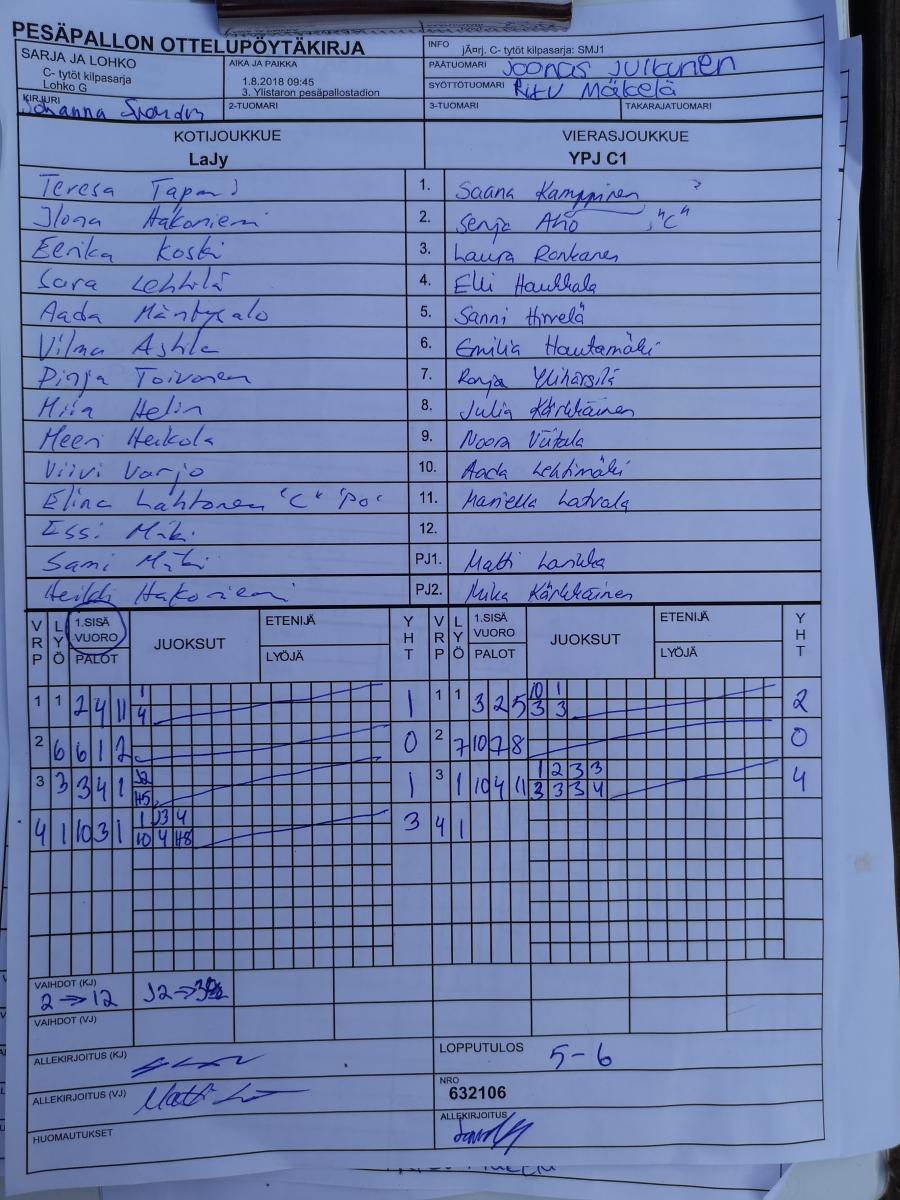 PESÄPALLON OTTELUPÖYTÄKIRJA
SARJA JA LOHKO
C- tytöt kilpasarja
Lohko G
AIKA JA PAIKKA
1.8.2018 09:45
3. Ylistaron pesäpallostadion
INFO jÃ¤rj. C- tytöt kilpasarja: SMJ1
PÄÄTUOMARI Joonas Julkunen
SYÖTTÖTUOMARI Ritu Mäkelä
KIRJURI Johanna
2-TUOMARI
3-TUOMARI
TAKARAJATUOMARI
KOTIJOUKKUE
LaJy
VIERASJOUKKUE
YPJ C1
Teresa Tapani 1. Saana Kamppinen ?
Ilona Hakoniemi 2. Senja Aho "C"
Eerika Koski 3. Laura Ronkanen
Sara Lehtilä 4. Elli Haukkala
Aada Mäntysalo 5. Sanni Hirvelä
Vilma Astila 6. Emilia Hautamäki
Pinja Toivonen 7. Ronja Ylihärsilä
Miia Helin 8. Julia Kärkkäinen
Meeri Heikola 9. Noora Viitala
Viivi Varjo 10. Aada Lehtimäki
Elina Lahtonen "C" "Po" 11. Mariella Latvala
Essi Mäki 12.
Sami Mäki PJ1. Matti
Heikki Hakoniemi PJ2. Mika Kärkkäinen
VRP LYÖ 1.SISÄ VUORO PALOT JUOKSUT ETENIJÄ LYÖJÄ YHT VRP LYÖ 1.SISÄ VUORO PALOT JUOKSUT ETENIJÄ LYÖJÄ YHT
1 1 2 4 11 1 1 1 1 3 2 5 10 1 2
4 3 3
2 6 6 1 2 0 2 7 10 7 8 0
3 3 3 4 1 J2 1 3 1 10 4 11 1 2 3 3 4
H5 3 3 3 4
4 1 10 3 1 1 J3 4 3 4 1
10 4 H8
VAIHDOT (KJ)
2 → 12 J2 →
VAIHDOT (VJ)
ALLEKIRJOITUS (KJ)
LOPPUTULOS 5-6
ALLEKIRJOITUS (VJ) Matti
NRO
632106
HUOMAUTUKSET
ALLEKIRJOITUS